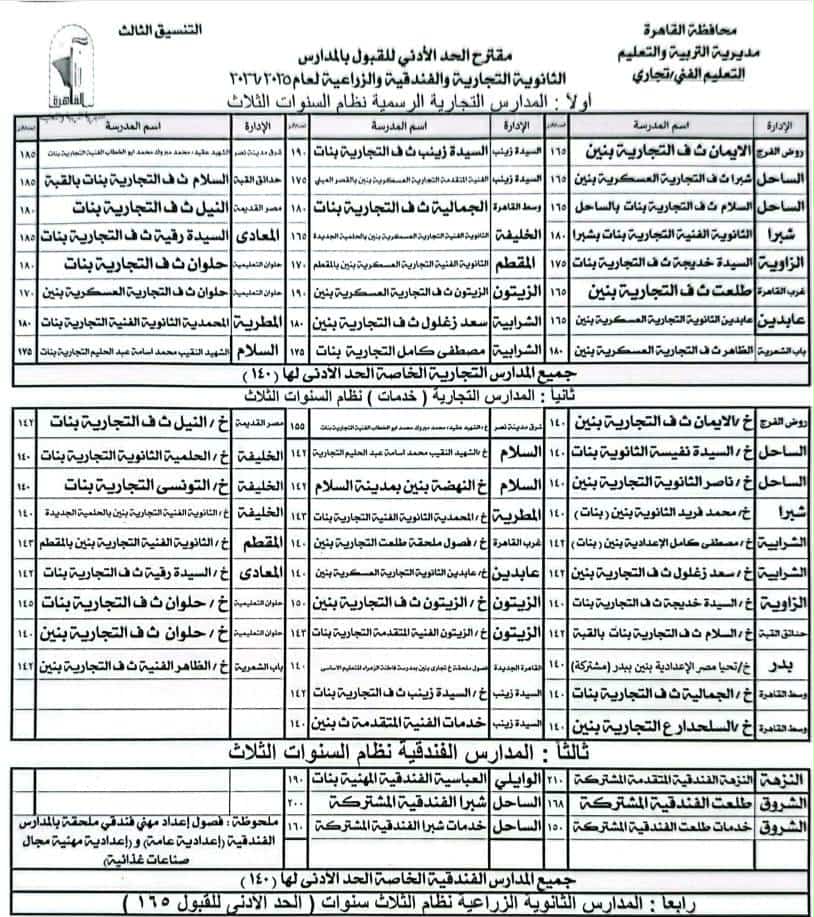 محافظة القاهرة
مديرية التربية والتعليم
التعليم الفني/تجاري
التنسيق الثالث
القاهرة
مقترح الحد الأدني للقبول بالمدارس
الثانوية التجارية والفندقية والزراعية لعام ٢٠٢٦/٢٠٢٥
أولاً : المدارس التجارية الرسمية نظام السنوات الثلاث
الإدارة اسم المدرسة الإدارة اسم المدرسة الإدارة اسم المدرسة
روض الفرج الايمان ث ف التجارية بنين ١٦٥ السيدة زينب السيدة زينب ث ف التجارية بنات ١٩٠ شرق مدينة نصر الشهيد عقيد/ محمد مبروك محمد ابو الخطاب الفنية التجارية بنات ١٨٥
الساحل شبرا ث ف التجارية العسكرية بنين ١٦٥ السيدة زينب الفنية المتقدمة التجارية العسكرية بنين بالقصر العيني ١٧٥ حدائق القبة السلام ث ف التجارية بنات بالقبة ١٨٥
الساحل السلام ث ف التجارية بنات بالساحل ١٦٥ وسط القاهرة الجمالية ث ف التجارية بنات ١٨٠ مصر القديمة النيل ث ف التجارية بنات ١٨٠
شبرا الثانوية الفنية التجارية بنات بشبرا ١٨٠ الخليفة الثانوية الفنية التجارية العسكرية بنين بالحلمية الجديدة ١٦٥ المعادى السيدة رقية ث ف التجارية بنات ١٨٥
الزاوية السيدة خديجة ث ف التجارية بنات ١٧٥ المقطم الثانوية الفنية التجارية العسكرية بنين بالمقطم ١٧٠ حلوان التعليمية حلوان ث ف التجارية بنات ١٨٠
غرب القاهرة طلعت ث ف التجارية بنين ١٦٥ الزيتون الزيتون ث ف التجارية العسكرية بنين ١٩٠ حلوان التعليمية حلوان ث ف التجارية العسكرية بنين ١٧٠
عابدين عابدين الثانوية التجارية العسكرية بنين ١٦٥ الشرابية سعد زغلول ث ف التجارية العسكرية بنين ١٨٠ المطرية المحمدية الثانوية الفنية التجارية بنات ١٨٠
باب الشعرية الظاهر ث ف التجارية العسكرية بنين ١٨٠ الشرابية مصطفى كامل التجارية بنات ١٧٥ السلام الشهيد النقيب محمد أسامة عبد الحليم التجارية بنات ١٧٥
جميع المدارس التجارية الخاصة الحد الادنى لها (١٤٠)
ثانياً : المدارس التجارية ( خدمات ) نظام السنوات الثلاث
روض الفرج خ/الايمان ث ف التجارية بنين ١٤٠ شرق مدينة نصر خ/الشهيد عقيد/ محمد مبروك محمد ابو الخطاب الفنية التجارية بنات ١٥٥ مصر القديمة خ/ النيل ث ف التجارية بنات ١٤٢
الساحل خ/ السيدة نفيسة الثانوية بنات ١٤٠ السلام خ/الشهيد النقيب محمد أسامة عبد الحليم التجارية ١٤٢ الخليفة خ/ الحلمية الثانوية التجارية بنات ١٤٠
الساحل خ/ ناصر الثانوية التجارية بنين ١٤٠ السلام خ النهضة بنين بمدينة السلام ١٤٢ الخليفة خ/ التونسى التجارية بنات ١٤٠
شبرا خ/ محمد فريد الثانوية بنين (بنات) ١٤٠ المطرية خ/ المحمدية الثانوية الفنية التجارية بنات ١٤٣ الخليفة خ/ الثانوية الفنية التجارية بنين بالحلمية الجديدة ١٤٠
الشرابية خ/ مصطفى كامل الإعدادية بنين (بنات) ١٤٢ غرب القاهرة خ/ فصول ملحقة طلعت التجارية بنين ١٤٠ المقطم خ/ الثانوية الفنية التجارية بنين بالمقطم ١٤٣
الشرابية خ/ سعد زغلول ث ف التجارية بنين ١٤٢ عابدين خ/ عابدين الثانوية التجارية العسكرية بنين ١٤٠ المعادى خ/ السيدة رقية ث ف التجارية بنات ١٤٢
الزاوية خ/ السيدة خديجة ث ف التجارية بنات ١٤٠ الزيتون خ/ الزيتون ث ف التجارية بنين ١٥٠ حلوان التعليمية خ/ حلوان ث ف التجارية بنات ١٤٥
حدائق القبة خ/ السلام ث ف التجارية بنات بالقبة ١٤٢ الزيتون خ/ الزيتون الفنية المتقدمة التجارية بنات ١٤٣ حلوان التعليمية خ/ حلوان ث ف التجارية بنين ١٤٠
بدر خ/تحيا مصر الإعدادية بنين ببدر (مشتركة) ١٤٠ القاهرة الجديدة فصول ملحقة خ تجارى بنين بمدرسة فاطمة الزهراء للتعليم الاساسى ١٤٠ باب الشعرية خ/ الظاهر الفنية ث ف التجارية بنين ١٤٢
وسط القاهرة خ/ الجمالية ث ف التجارية بنات ١٤٠ السيدة زينب خ/ السيدة زينب ث ف التجارية بنات ١٤٢
وسط القاهرة خ/ السلحدار ع التجارية بنين ١٤٠ السيدة زينب خدمات الفنية المتقدمة ث بنين ١٤٠
ثالثاً : المدارس الفندقية نظام السنوات الثلاث
النزهة النزهة الفندقية المتقدمة المشتركة ٢١٠ الوايلي العباسية الفندقية المهنية بنات ١٩٠
الشروق طلعت الفندقية المشتركة ١٦٨ الساحل شبرا الفندقية المشتركة ٢٠٠
الشروق خدمات طلعت الفندقية المشتركة ١٥٠ الساحل خدمات شبرا الفندقية المشتركة ١٦٠
ملحوظة : فصول إعداد مهني فندقي ملحقة بالمدارس
الفندقية (إعدادية عامة) و (إعدادية مهنية مجال
صناعات غذائية)
جميع المدارس الفندقية الخاصة الحد الأدنى لها (١٤٠)
رابعا : المدارس الثانوية الزراعية نظام الثلاث سنوات ( الحد الأدنى للقبول ١٦٥ )